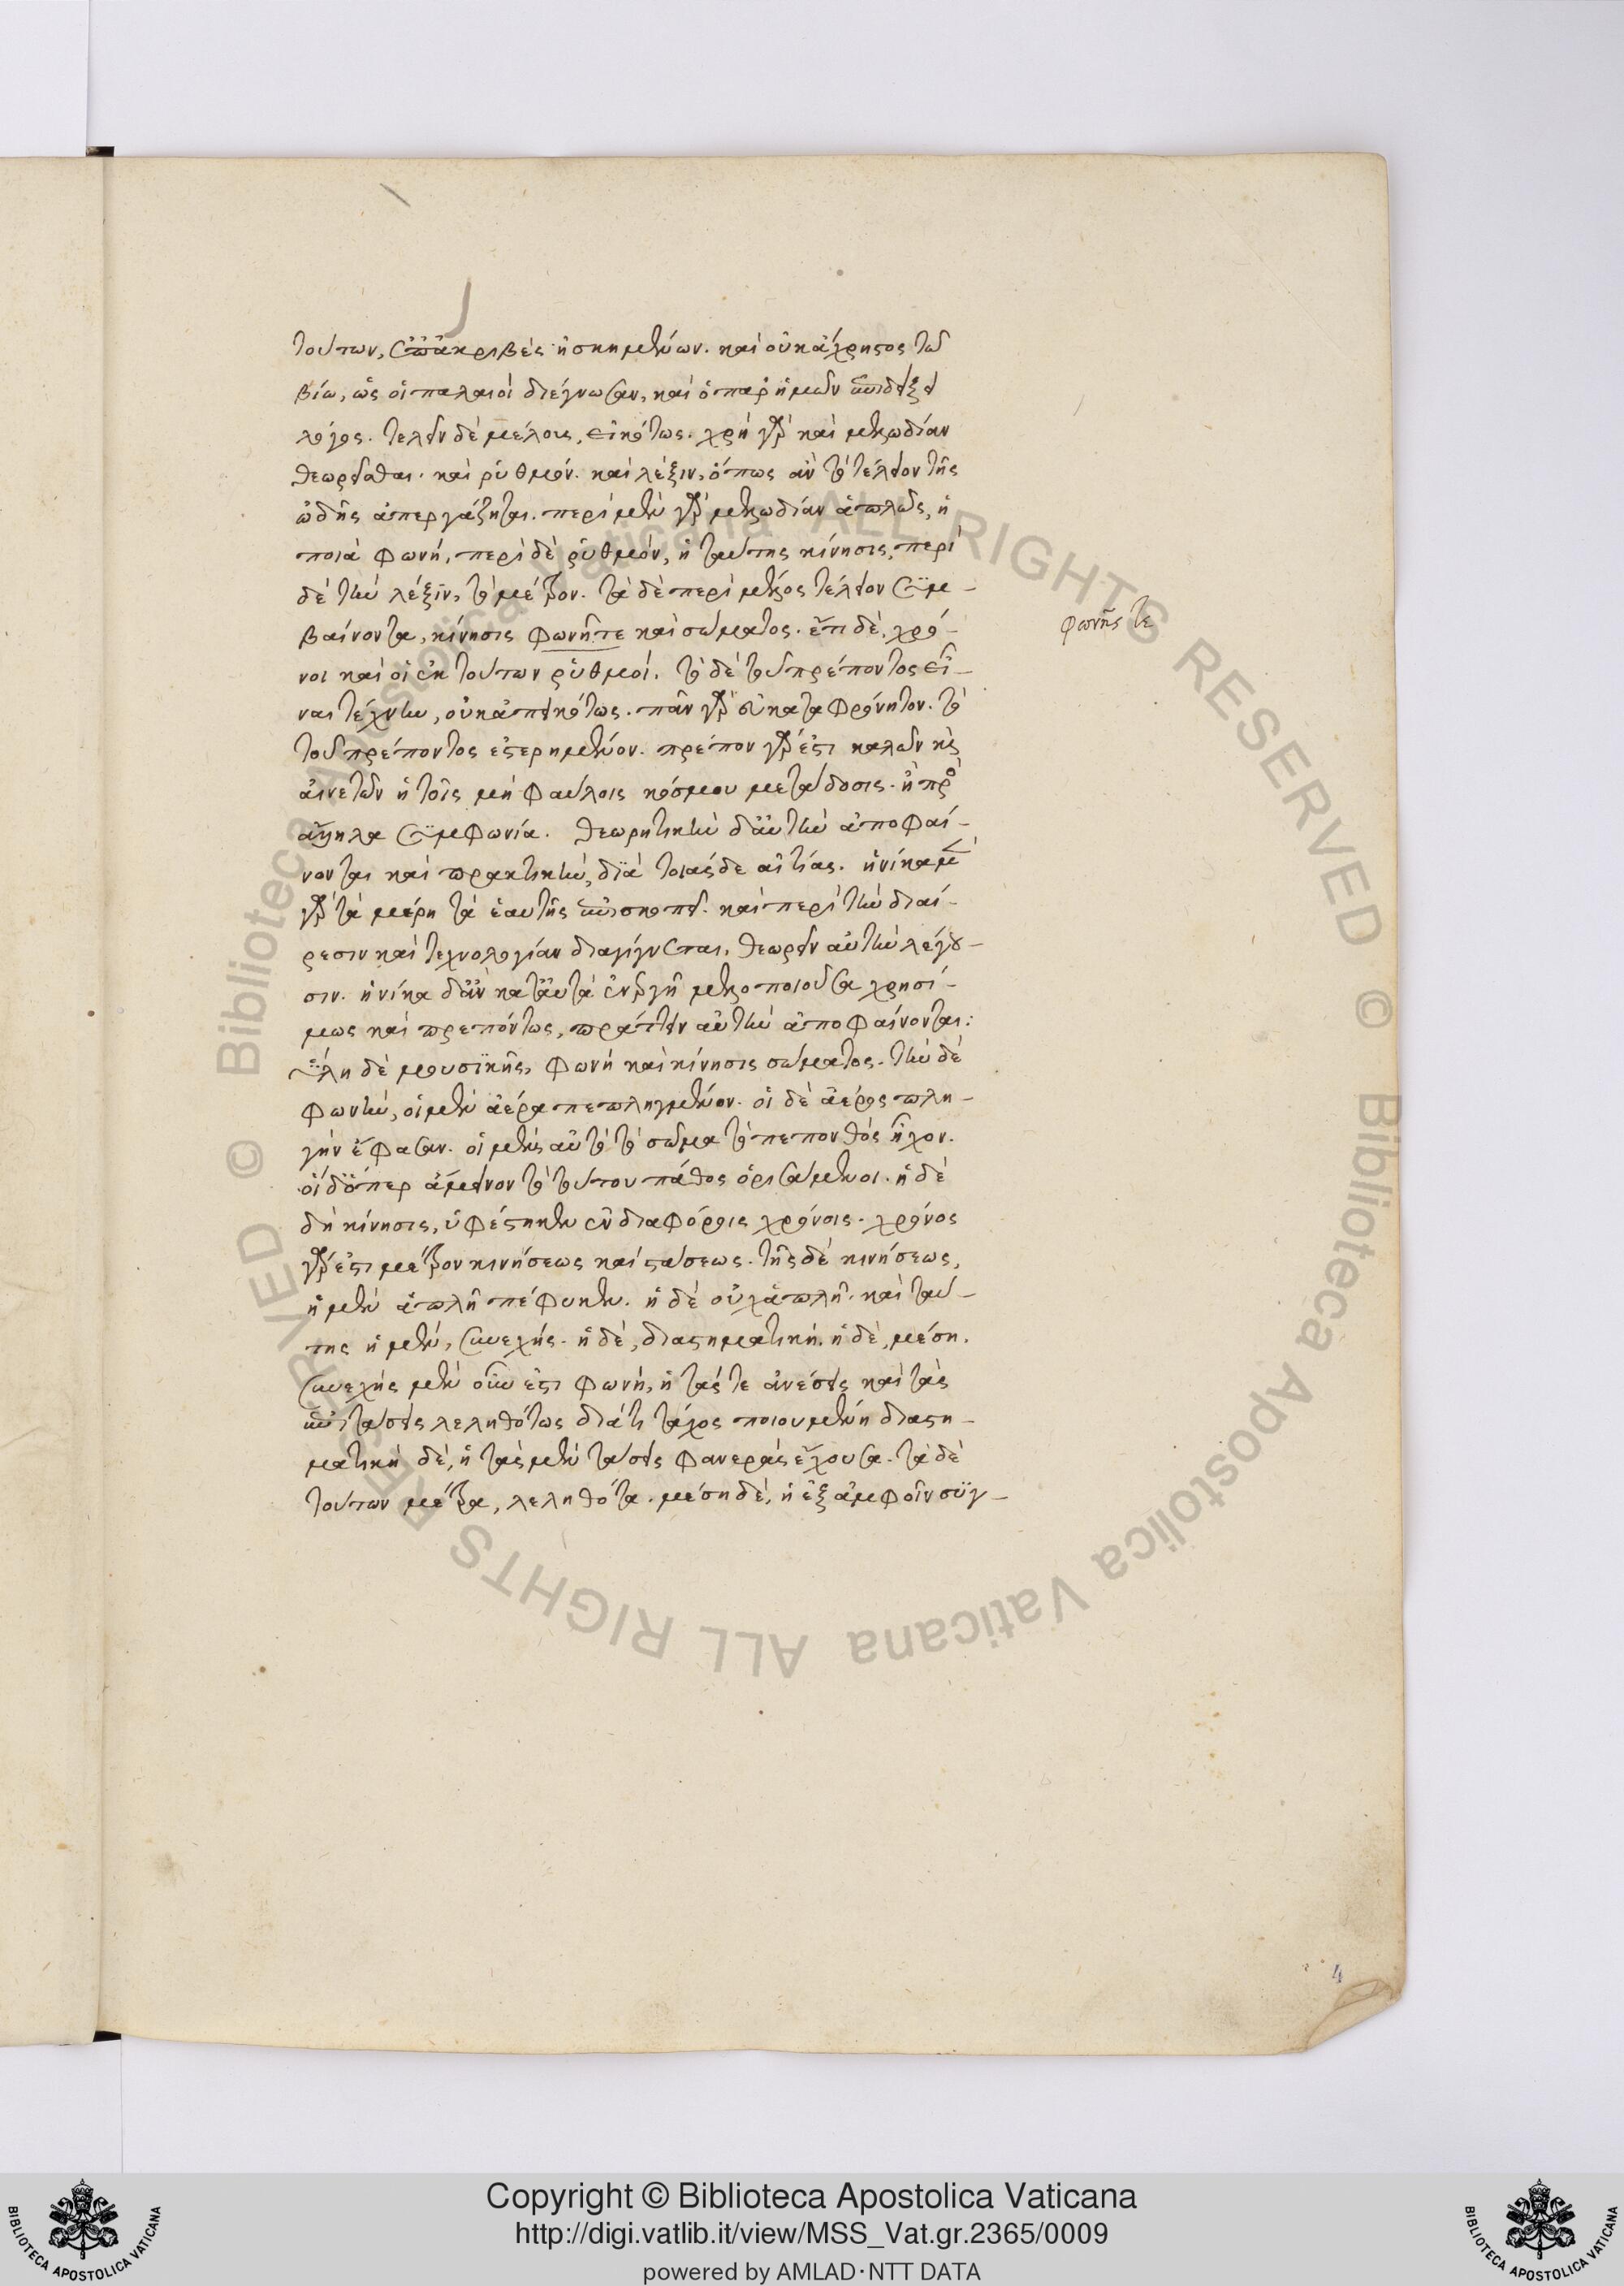 τούτων, ἐπ' ἀκριβὲς ἠσκημένων. καὶ οὐκ ἄχρηστος τῶ
βίω, ὡς οἱ παλαιοὶ διέγνωσαν, καὶ ὁ παρ' ἡμῶν ἐπιδείξει
λόγος. τελεῖν δὲ μέλους, εἰκότως. χρὴ γὰρ καὶ μελωδίαν
θεωρεῖσθαι. καὶ ῥυθμόν. καὶ λέξιν, ὅπως ἂν τὸ τέλειον τῆς
ὠδῆς ἀπεργάζηται. περὶ μὲν γὰρ μελωδίαν ἁπλῶς, ἡ
ποιὰ φωνή, περὶ δὲ ῥυθμὸν, ἡ ταύτης κίνησις, περὶ
δὲ τὴν λέξιν, τὸ μέτρον. τὰ δὲ περὶ μέλος τέλειον συμ-
βαίνοντα, κίνησις φωνῆτε καὶ σώματος. ἔτι δὲ, χρό-
νοι καὶ οἱ ἐκ τούτων ῥυθμοί. τὸ δὲ τοῦ πρέποντος εἶ-
ναι τέχνην, οὐκ ἀπεικότως. πᾶν γὰρ εὐκαταφρόνητον. τὸ
τοῦ πρέποντος ἐστερημένον. πρέπον γάρ ἐστι καλῶν κὶ
αἰνετῶν ἡ τοῖς μὴ φαύλοις κόσμου μετάδοσις. ἢ πρὸς
ἄλληλα συμφωνία. θεωρητικὴν δ' αὐτὴν ἀποφαί-
νονται καὶ πρακτικὴν, διὰ τοιάσδε αἰτίας. ἡνίκα μὲν
γὰρ τὰ μέρη τὰ ἑαυτῆς ἐπισκοπεῖ. καὶ περὶ τὴν διαί-
ρεσιν καὶ τεχνολογίαν διαγίγνεται, θεωρεῖν αὐτὴν λέγου-
σιν. ἡνίκα δ' ἂν κατ' αὐτὰ ἐνεργῆ μελοποιοῦσα χρησί-
μως καὶ πρεπόντως, πράττειν αὐτὴν ἀποφαίνονται:
ὕλη δὲ μουσικῆς, φωνὴ καὶ κίνησις σώματος. τὴν δὲ
φωνὴν, οἱ μὲν ἀέρα πεπληγμένον. οἱ δὲ ἀέρος πλη-
γὴν ἔφασαν. οἱ μὲν αὐτὸ τὸ σῶμα τὸ πεπονθὸς ἦχον.
οἱ δ' ὅπερ ἄμεινον τὸ τούτου πάθος ὁρισάμενοι. ἡ δὲ
δὴ κίνησις, ὑφέστηκεν ἐν διαφόροις χρόνοις. χρόνος
γάρ ἐστι μέτρον κινήσεως καὶ στάσεως. τῆς δὲ κινήσεως,
ἡ μὲν ἁπλῆ πέφυκεν. ἡ δὲ οὐχ ἁπλῆ. καὶ ταύ-
της ἡ μὲν, συνεχής. ἡ δὲ, διαστηματική. ἡ δὲ, μέση.
συνεχὴς μὲν οὖν ἐστι φωνή, ἡ τάς τε ἀνέσεις καὶ τὰς
ἐπιτάσεις λεληθότως διά τι τάχος ποιουμένη διαστη-
ματικὴ δέ, ἡ τὰς μὲν τάσεις φανερὰς ἔχουσα. τὰ δὲ
τούτων μέτρα, λεληθότα. μέση δέ, ἡ ἐξ ἀμφοῖν σύγ-
φωνῆς τε
4
Copyright © Biblioteca Apostolica Vaticana
http://digi.vatlib.it/view/MSS_Vat.gr.2365/0009
powered by AMLAD·NTT DATA
BIBLIOTECA APOSTOLICA VATICANA
BIBLIOTECA APOSTOLICA VATICANA
© Biblioteca Apostolica Vaticana ALL RIGHTS RESERVED
© Biblioteca Apostolica Vaticana ALL RIGHTS RESERVED